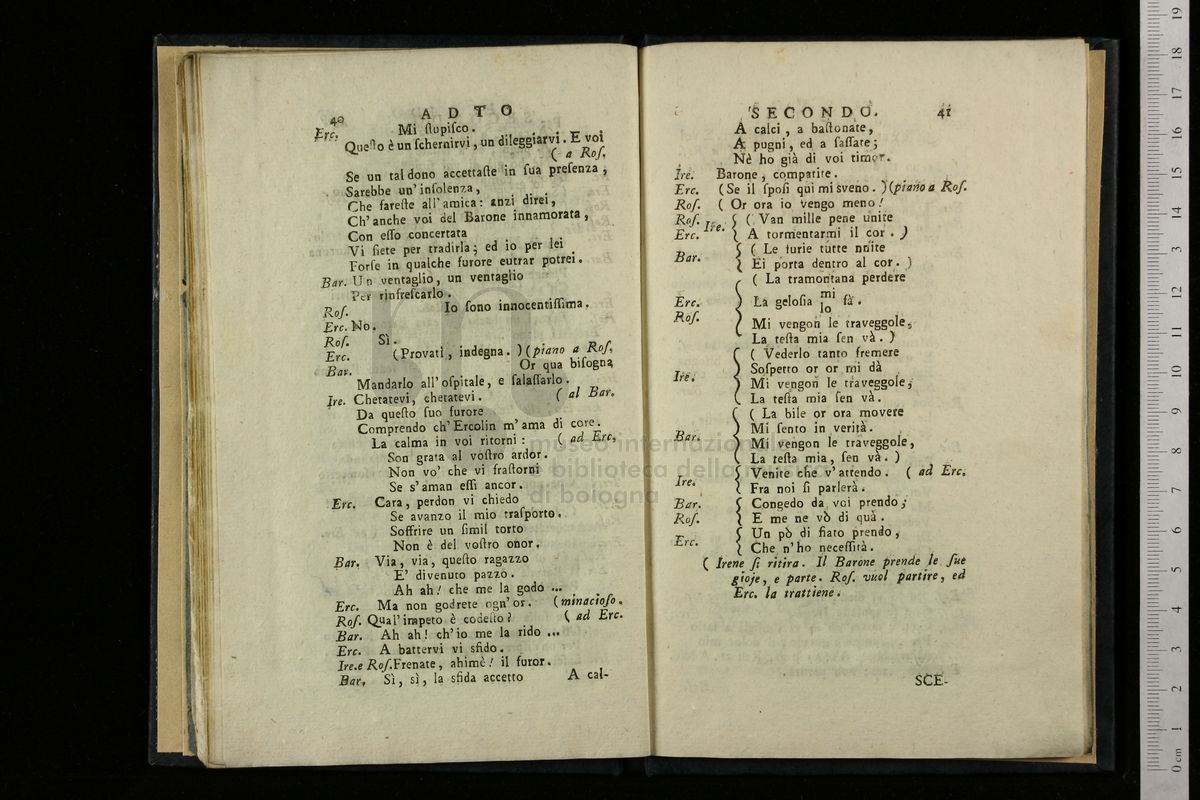 40
ADTO
Erc. Mi ſtupiſco.
Queſto è un ſchernirvi, un dileggiarvi. E voi
( a Roſ.
Se un tal dono accettaſte in ſua preſenza,
Sarebbe un' inſolenza,
Che fareſte all' amica: anzi direi,
Ch' anche voi del Barone innamorata,
Con eſſo concertata
Vi ſiete per tradirla; ed io per lei
Forſe in qualche furore eutrar potrei.
Bar. Un ventaglio, un ventaglio
Per rinfreſcarlo.
Roſ. Io ſono innocentiſſima.
Erc. No.
Roſ. Sì.
Erc. (Provati, indegna. ) (piano a Roſ.
Bar. Or qua biſogna
Mandarlo all' oſpitale, e ſalaſſarlo.
Ire. Chetatevi, chetatevi. ( al Bar.
Da queſto ſuo furore
Comprendo ch' Ercolin m' ama di core.
La calma in voi ritorni: ( ad Erc.
Son grata al voſtro ardor.
Non vo' che vi fraſtorni
Se s' aman eſſi ancor.
Erc. Cara, perdon vi chiedo
Se avanzo il mio traſporto.
Soffrire un ſimil torto
Non è del voſtro onor.
Bar. Via, via, queſto ragazzo
E' divenuto pazzo.
Ah ah! che me la godo ...
Erc. Ma non godrete ogn' or. (minacioſo.
Roſ. Qual' impeto è codeſto? ( ad Erc.
Bar. Ah ah! ch' io me la rido ...
Erc. A battervi vi sfido.
Ire. e Roſ. Frenate, ahimè! il furor.
Bar. Sì, sì, la sfida accetto
A cal-
SECONDO. 41
A calci, a baſtonate,
A pugni, ed a ſaſſate;
Nè ho già di voi timor.
Ire. Barone, compatite.
Erc. (Se il ſpoſi qui mi sveno. ) (piano a Roſ.
Roſ. ( Or ora io vengo meno!
Roſ. Ire. ( Van mille pene unite
Erc. A tormentarmi il cor. )
Bar. ( Le furie tutte nnite
Ei porta dentro al cor. )
( La tramontana perdere
Erc. La geloſia mi fà.
Roſ. lo
Mi vengon le traveggole,
La teſta mia ſen và. )
( Vederlo tanto fremere
Soſpetto or or mi dà
Ire. Mi vengon le traveggole,
La teſta mia ſen và.
( La bile or ora movere
Mi ſento in verità.
Bar. Mi vengon le traveggole,
La teſta mia, ſen và. )
Ire. Venite che v' attendo. ( ad Erc.
Fra noi ſi parlerà.
Bar. Congedo da voi prendo;
Roſ. E me ne vò di quà.
Erc. Un pò di fiato prendo,
Che n' ho neceſſità.
( Irene ſi ritira. Il Barone prende le ſue
gioje, e parte. Roſ. vuol partire, ed
Erc. la trattiene.
SCE-
museo internazionale
biblioteca della musica
di bologna
0 cm 1 2 3 4 5 6 7 8 9 10 11 12 13 14 15 16 17 18 19